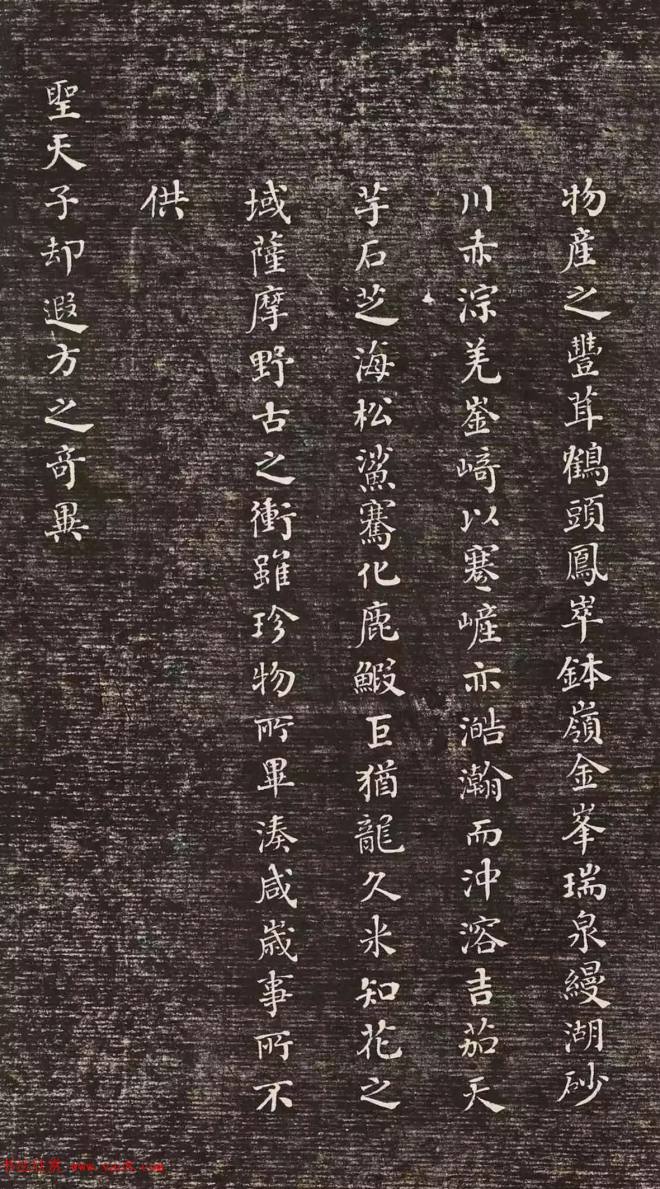 物產之豐茸鶴頭鳳崒鉢嶺金峯瑞泉縵湖砂
川赤淙羌崟崎以蹇嵼亦澔瀚而沖溶吉茄天
芋石芝海松鯊騫化鹿鰕巨猶龍久米知花之
域薩摩野古之衝雖珍物所畢湊咸歲事所不
供
聖天子却遐方之奇異